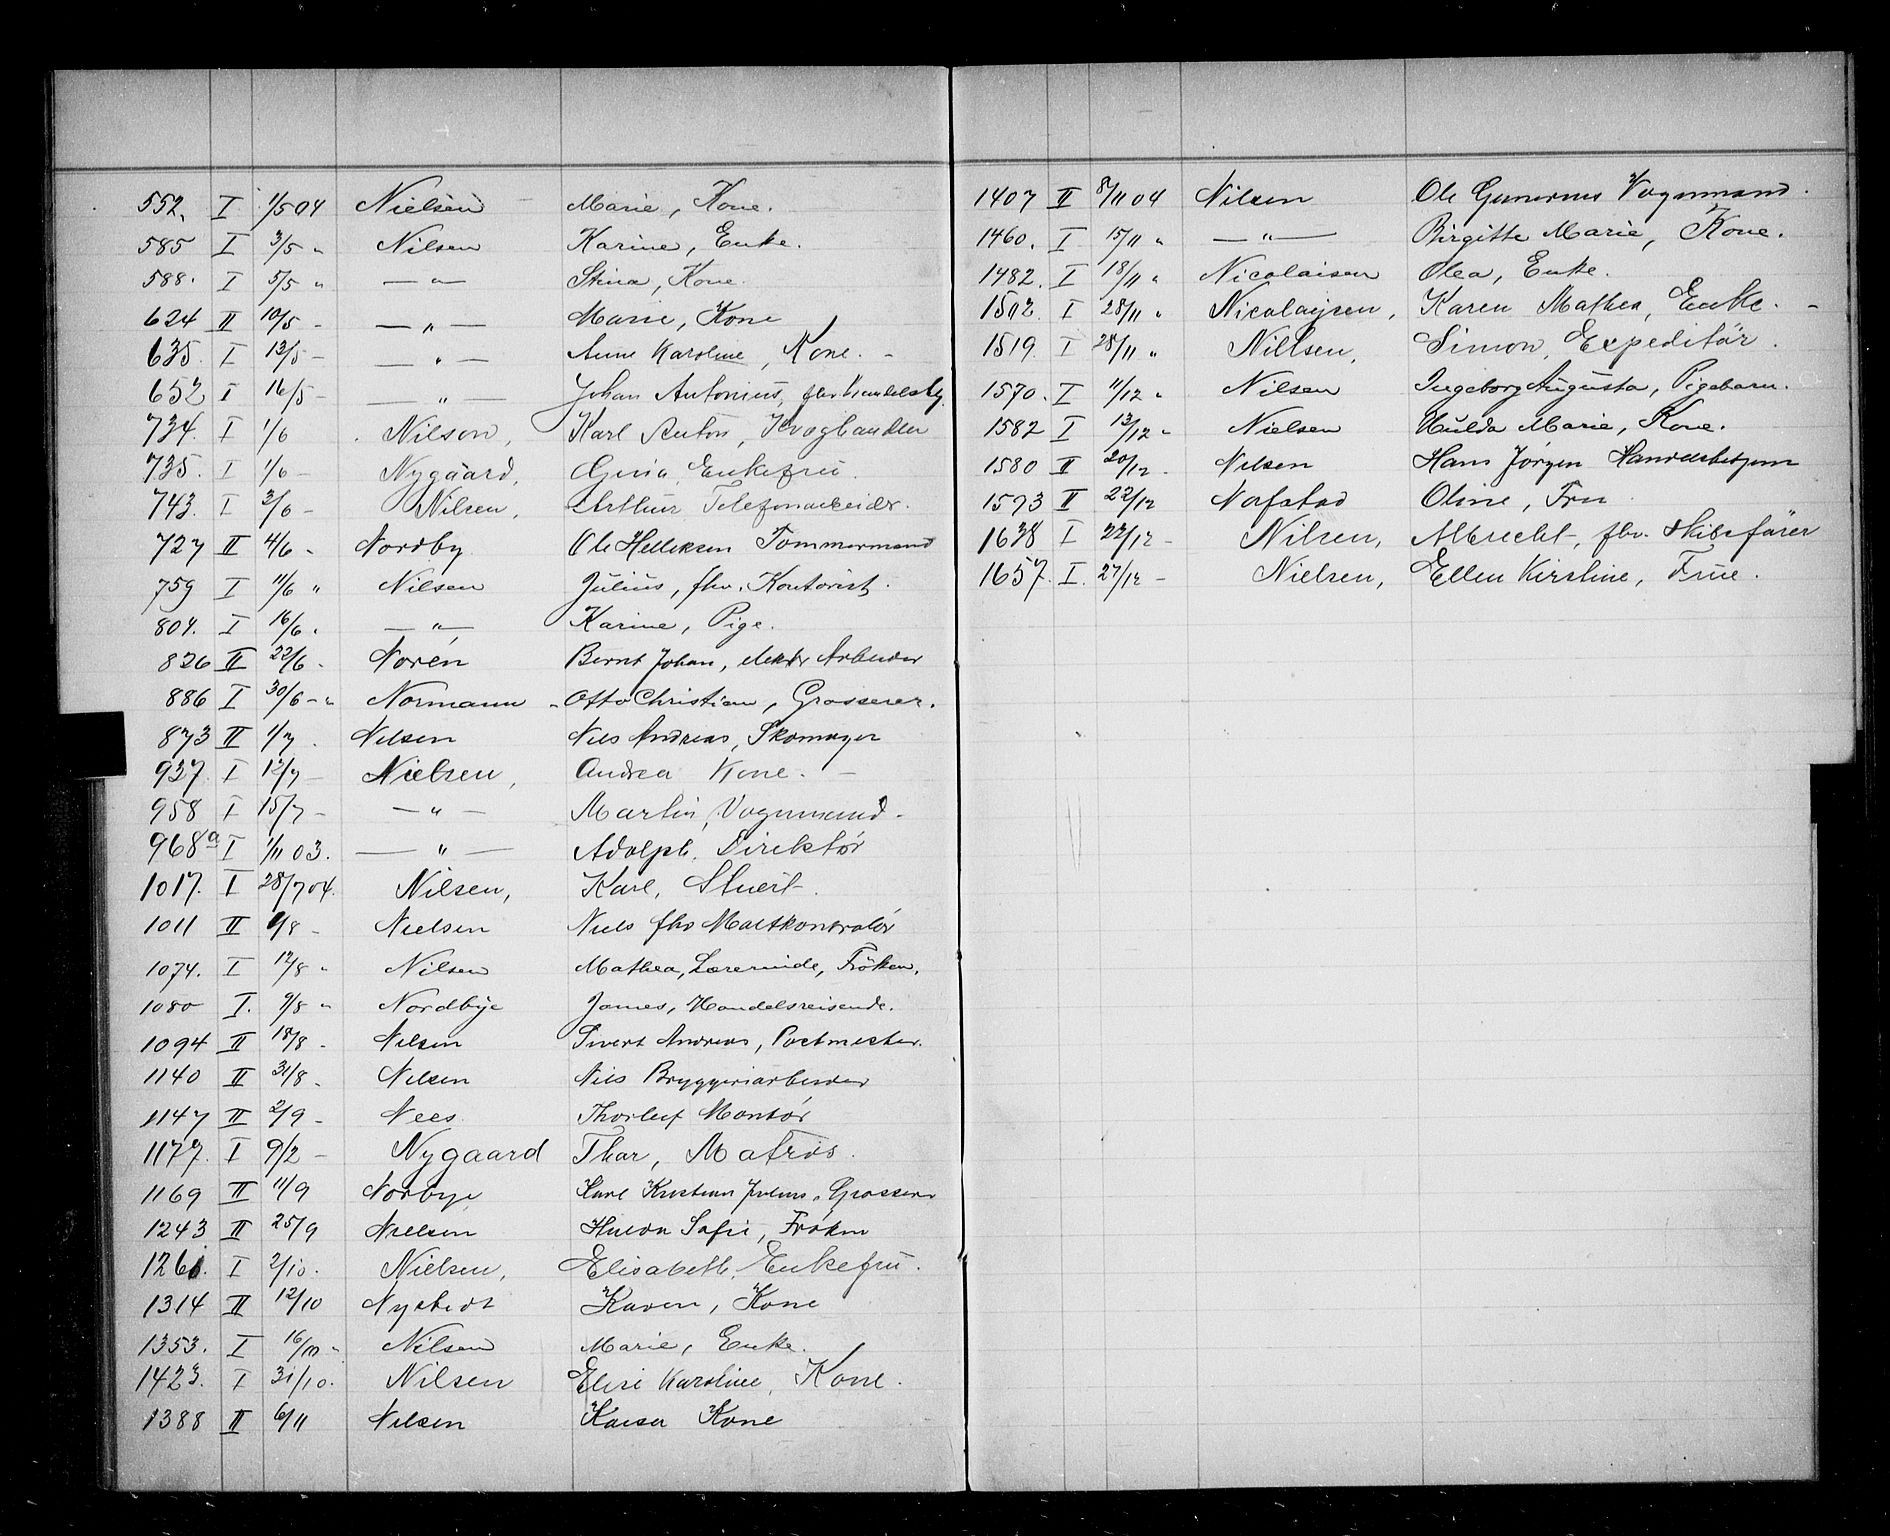 552. I 1/5 04 Nielsen Marie, Kone.
585 I 3/5 " Nilsen Karine, Enke.
588. I 5/5 " — " — Stina, Kone.
624 II 10/5 - — " — Marie, Kone
635. I 13/5 - — " — Anne Karoline, Kone. -
652 I 16/5 - — " — Johan Antonius, fhv
734. I 1/6 Nilson, Karl Anton, Kvæghandler
735. I 1/6 - Nygaard, Gina, Enkefru
743. I 2/6 - Nilsen, Arthur Telefonarbeider.
727 II 4/6 - Nordby Ole Helleksen Tømmermand
759 I 11/6 " Nilsen Julius, fhv. Kontorist.
804. I 16/6. — " — Karine, Pige.
826 II 22/6 - Norén Bernt Johan, elektr Arbeider
886 I 30/6 - " Normann - Otto Christian, Grosserer.
873 II 1/7. Nilsen Nils Andreas, Skomager
937. I 12/7 - Nielsen, Andrea Kone. -
958 I 15/7 - — " — Martin, Vognmand. -
968a I 1/11 03. — " — Adolph. Direktør
1017. I 28/7 04. Nilsen, Karl, Stuert.
1011 II /8 - Nielsen Niels fhv Maltkontrolør
1074. I 12/8 " Nilsen Mathea, Lærerinde, Frøken.
1080 I. 9/8 " Nordbye James, Handelsreisende.
1094 II 18/8 - Nilsen Sivert Andreas, Postmester.
1140 II 31/8 - Nilsen Nils Bryggeriarbeider
1147 II 2/9 - Nees Thorleif Montør
1177. I 9/2 - Nygaard Thor, Matros.
1169 II 11/9 Norbye Karl Kristian Julius, Grosserer
1243 II 25/9 Nielsen Hulda Sofie, Frøken
126. I 2/10. Nielsen, Elisabeth, Enkefru.
1314 II 12/10 Nystedt Karen, Kone
1353. I 16/10 " Nilsen Marie, Enke.
1423. I 31/10. Nilsen Elise Karoline, Kone.
1388 II 6/11 Nilsen Kaisa Kone
1407 II 8/11 04 Nilsen Ole Gunerius Vognmand.
1460. I 15/11 " — " — Birgitte Marie, Kone.
1482. I 18/11 " Nicolaisen Olea, Enke.
1502. I 28/11 " Nicolaysen, Karen Mathea, Enke. -
1519 I 28/11 " Nillsen, Simon, Expeditør.
1570. I 11/12 " Nilsen Ingeborg Augusta, Pigebarn.
1582 I 13/12 " Nielsen Hulda Marie, Kone.
1580 II 20/12 - Nilsen Hans Jørgen Handelsbetjent
1593 II 22/12 Nafstad Oline, Fru
1638 I 22/12 - Nilsen, Albrecht, fhv. Skibsfører
1657. I. 27/12 - Nielsen, Ellen Kirstine, Frue.